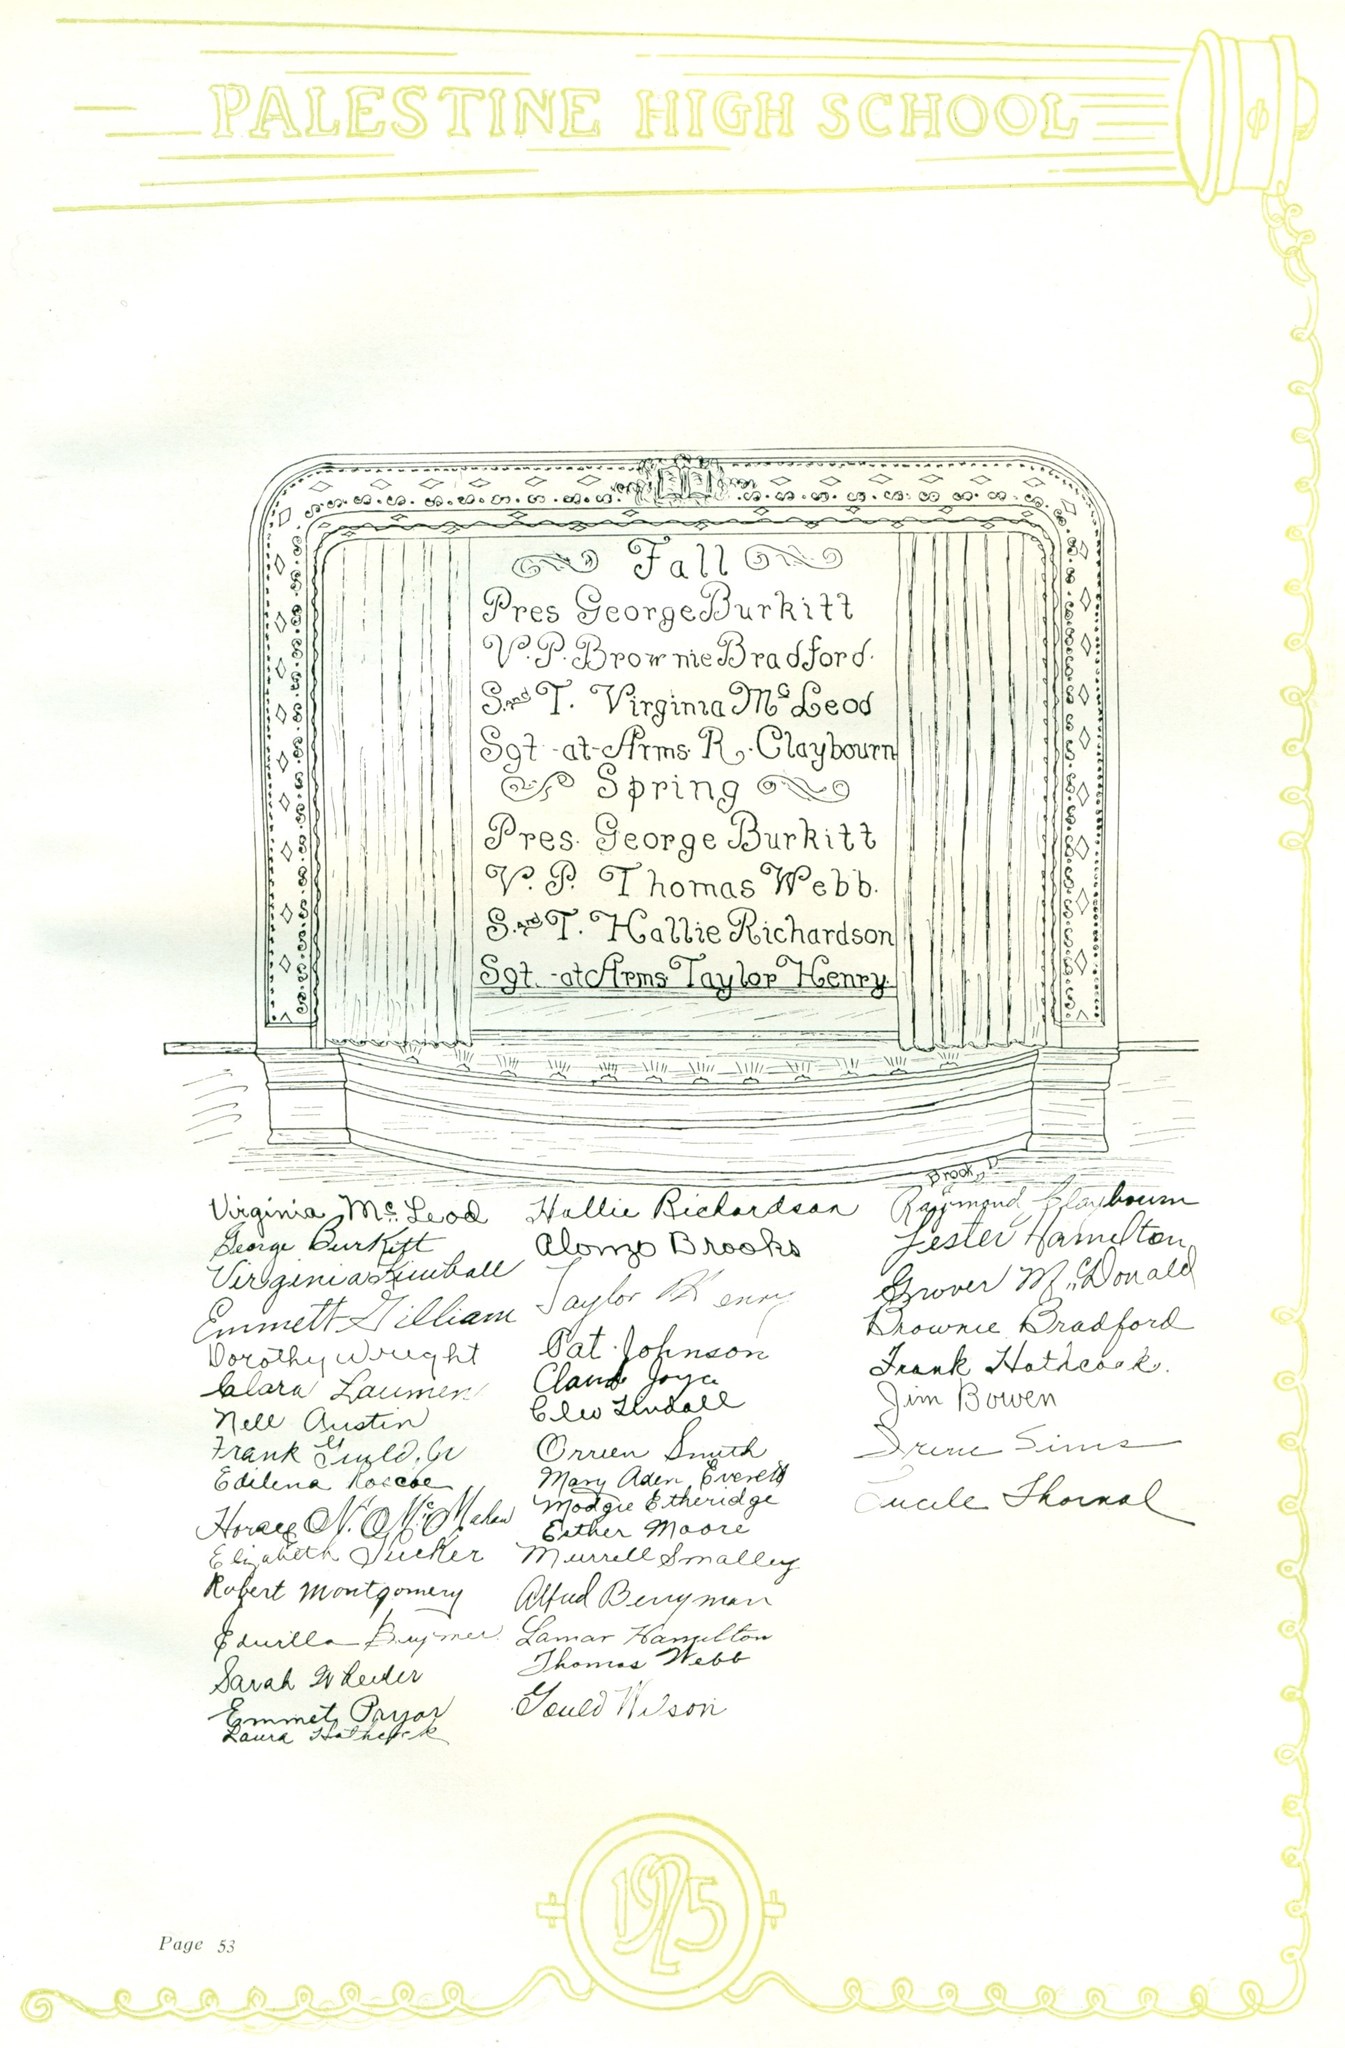 PALESTINE HIGH SCHOOL
Fall
Pres George Burkitt
V. P. Brownie Bradford.
S. and T. Virginia McLeod
Sgt-at-Arms. R. Claybourn
Spring
Pres. George Burkitt
V. P. Thomas Webb.
S. and T. Hallie Richardson
Sgt.-at Arms Taylor Henry.
Virginia McLeod
George Burkitt
Virginia Kimball
Emmett Gilliam
Dorothy Wright
Clara Laumen
Nell Austin
Frank Gould, Jr
Edilena Roscoe
Horace N. McMahan
Elizabeth Tucker
Robert Montgomery
Sarah Wheeler
Emmet Pryor
Laura Hathcock
Hallie Richardson
Alonzo Brooks
Taylor Henry
Pat Johnson
Claud Joyce
Cleo Tindall
Orreen Smith
Mary Aden Everett
Modgie Etheridge
Esther Moore
Murrell Smalley
Alfred Berryman
Lamar Hamilton
Thomas Webb
Gould Wilson
Raymond Claybourn
Lester Hamilton
Grover McDonald
Brownie Bradford
Frank Hathcock.
Jim Bowen
Irene Sims
Lucile Thornal
1925
Page 53